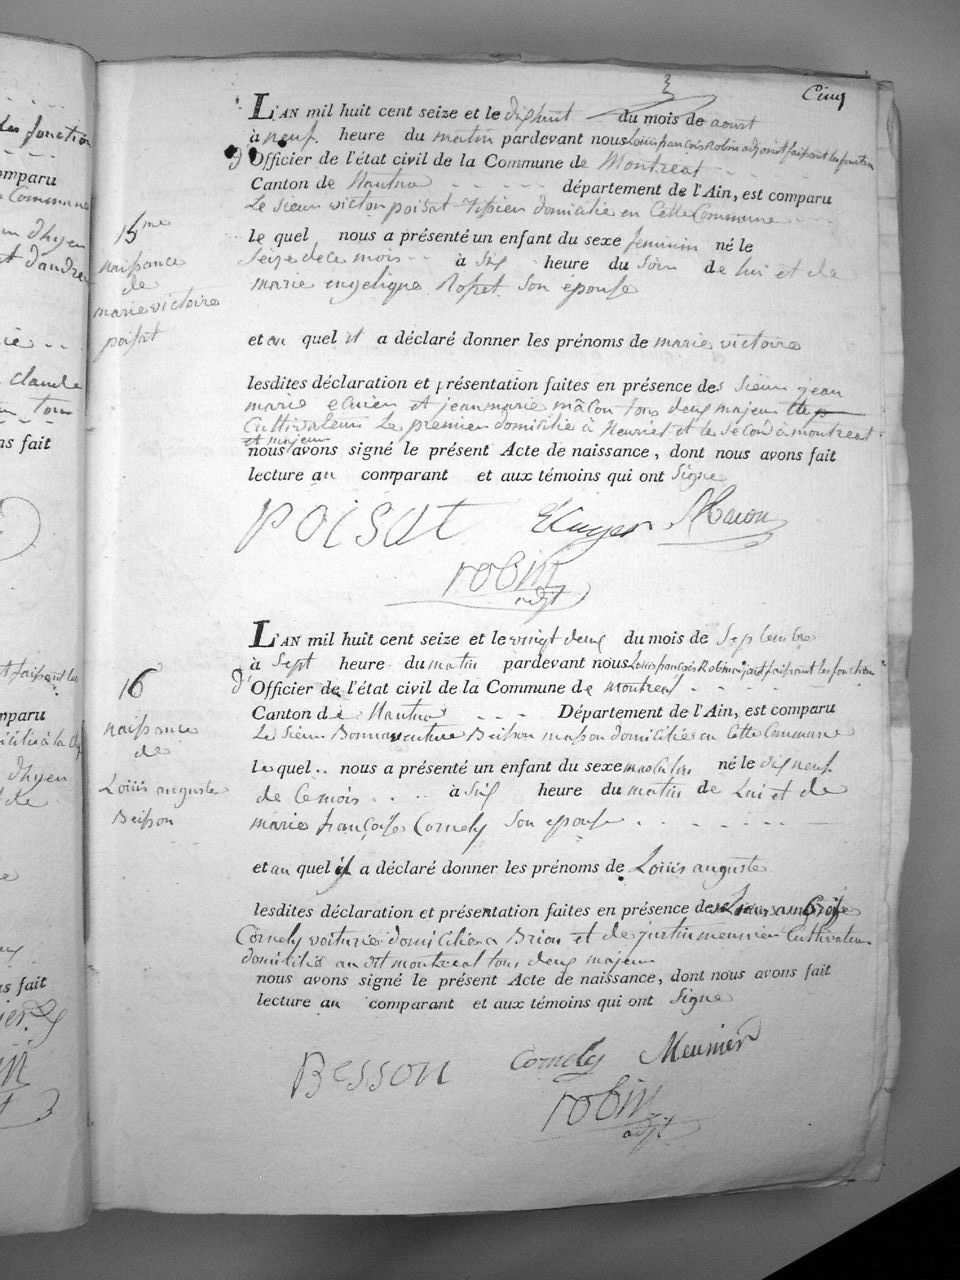 Cinq
L'AN mil huit cent seize et le dixhuit du mois de aoust
à neuf heure du matin pardevant nous Louis françois Robin adjoint faisant les fonction
d'Officier de l'état civil de la Commune de Montreal
Canton de Nantua département de l'Ain, est comparu
Le sieur victor poisat domicilié en Cette Commune
le quel nous a présenté un enfant du sexe feminin né le
Seize de ce mois à six heure du Soir de lui et de
marie engelique Rosset Son épouse
15me
naissance
de
marie victoire
poisat
et au quel il a déclaré donner les prénoms de marie victoire
lesdites déclaration et présentation faites en présence des Sieur jean
marie et jean marie mâcon tous deux majeur
Cultivateur Le premier domicilié à et le Second à montreal
et majeur
nous avons signé le présent Acte de naissance, dont nous avons fait
lecture au comparant et aux témoins qui ont Signé
POISAT Macon
robin
adjt
L'AN mil huit cent seize et le vingt deux du mois de Septembre
à Sept heure du matin pardevant nous Louis françois Robin adjoint faisant les fonction
d'Officier de l'état civil de la Commune de montreal
Canton de Nantua Département de l'Ain, est comparu
Le Sieur Bonnaventure Beisson masson domicilié en Cette Commune
le quel nous a présenté un enfant du sexe masculin né le dix neuf
de Ce mois à Six heure du matin de Lui et de
marie françoise Cornely Son epouse
16
naissance
de
Loüis auguste
Beisson
et au quel il a déclaré donner les prénoms de Loüis auguste
lesdites déclaration et présentation faites en présence des Sieurs ambroise
Cornely voiturier domicilié a Brion et de justin meunier Cultivateur
domicilié au dit montreal tous deux majeur
nous avons signé le présent Acte de naissance, dont nous avons fait
lecture au comparant et aux témoins qui ont Signé
BESSON Cornely Meunier
robin
adjt